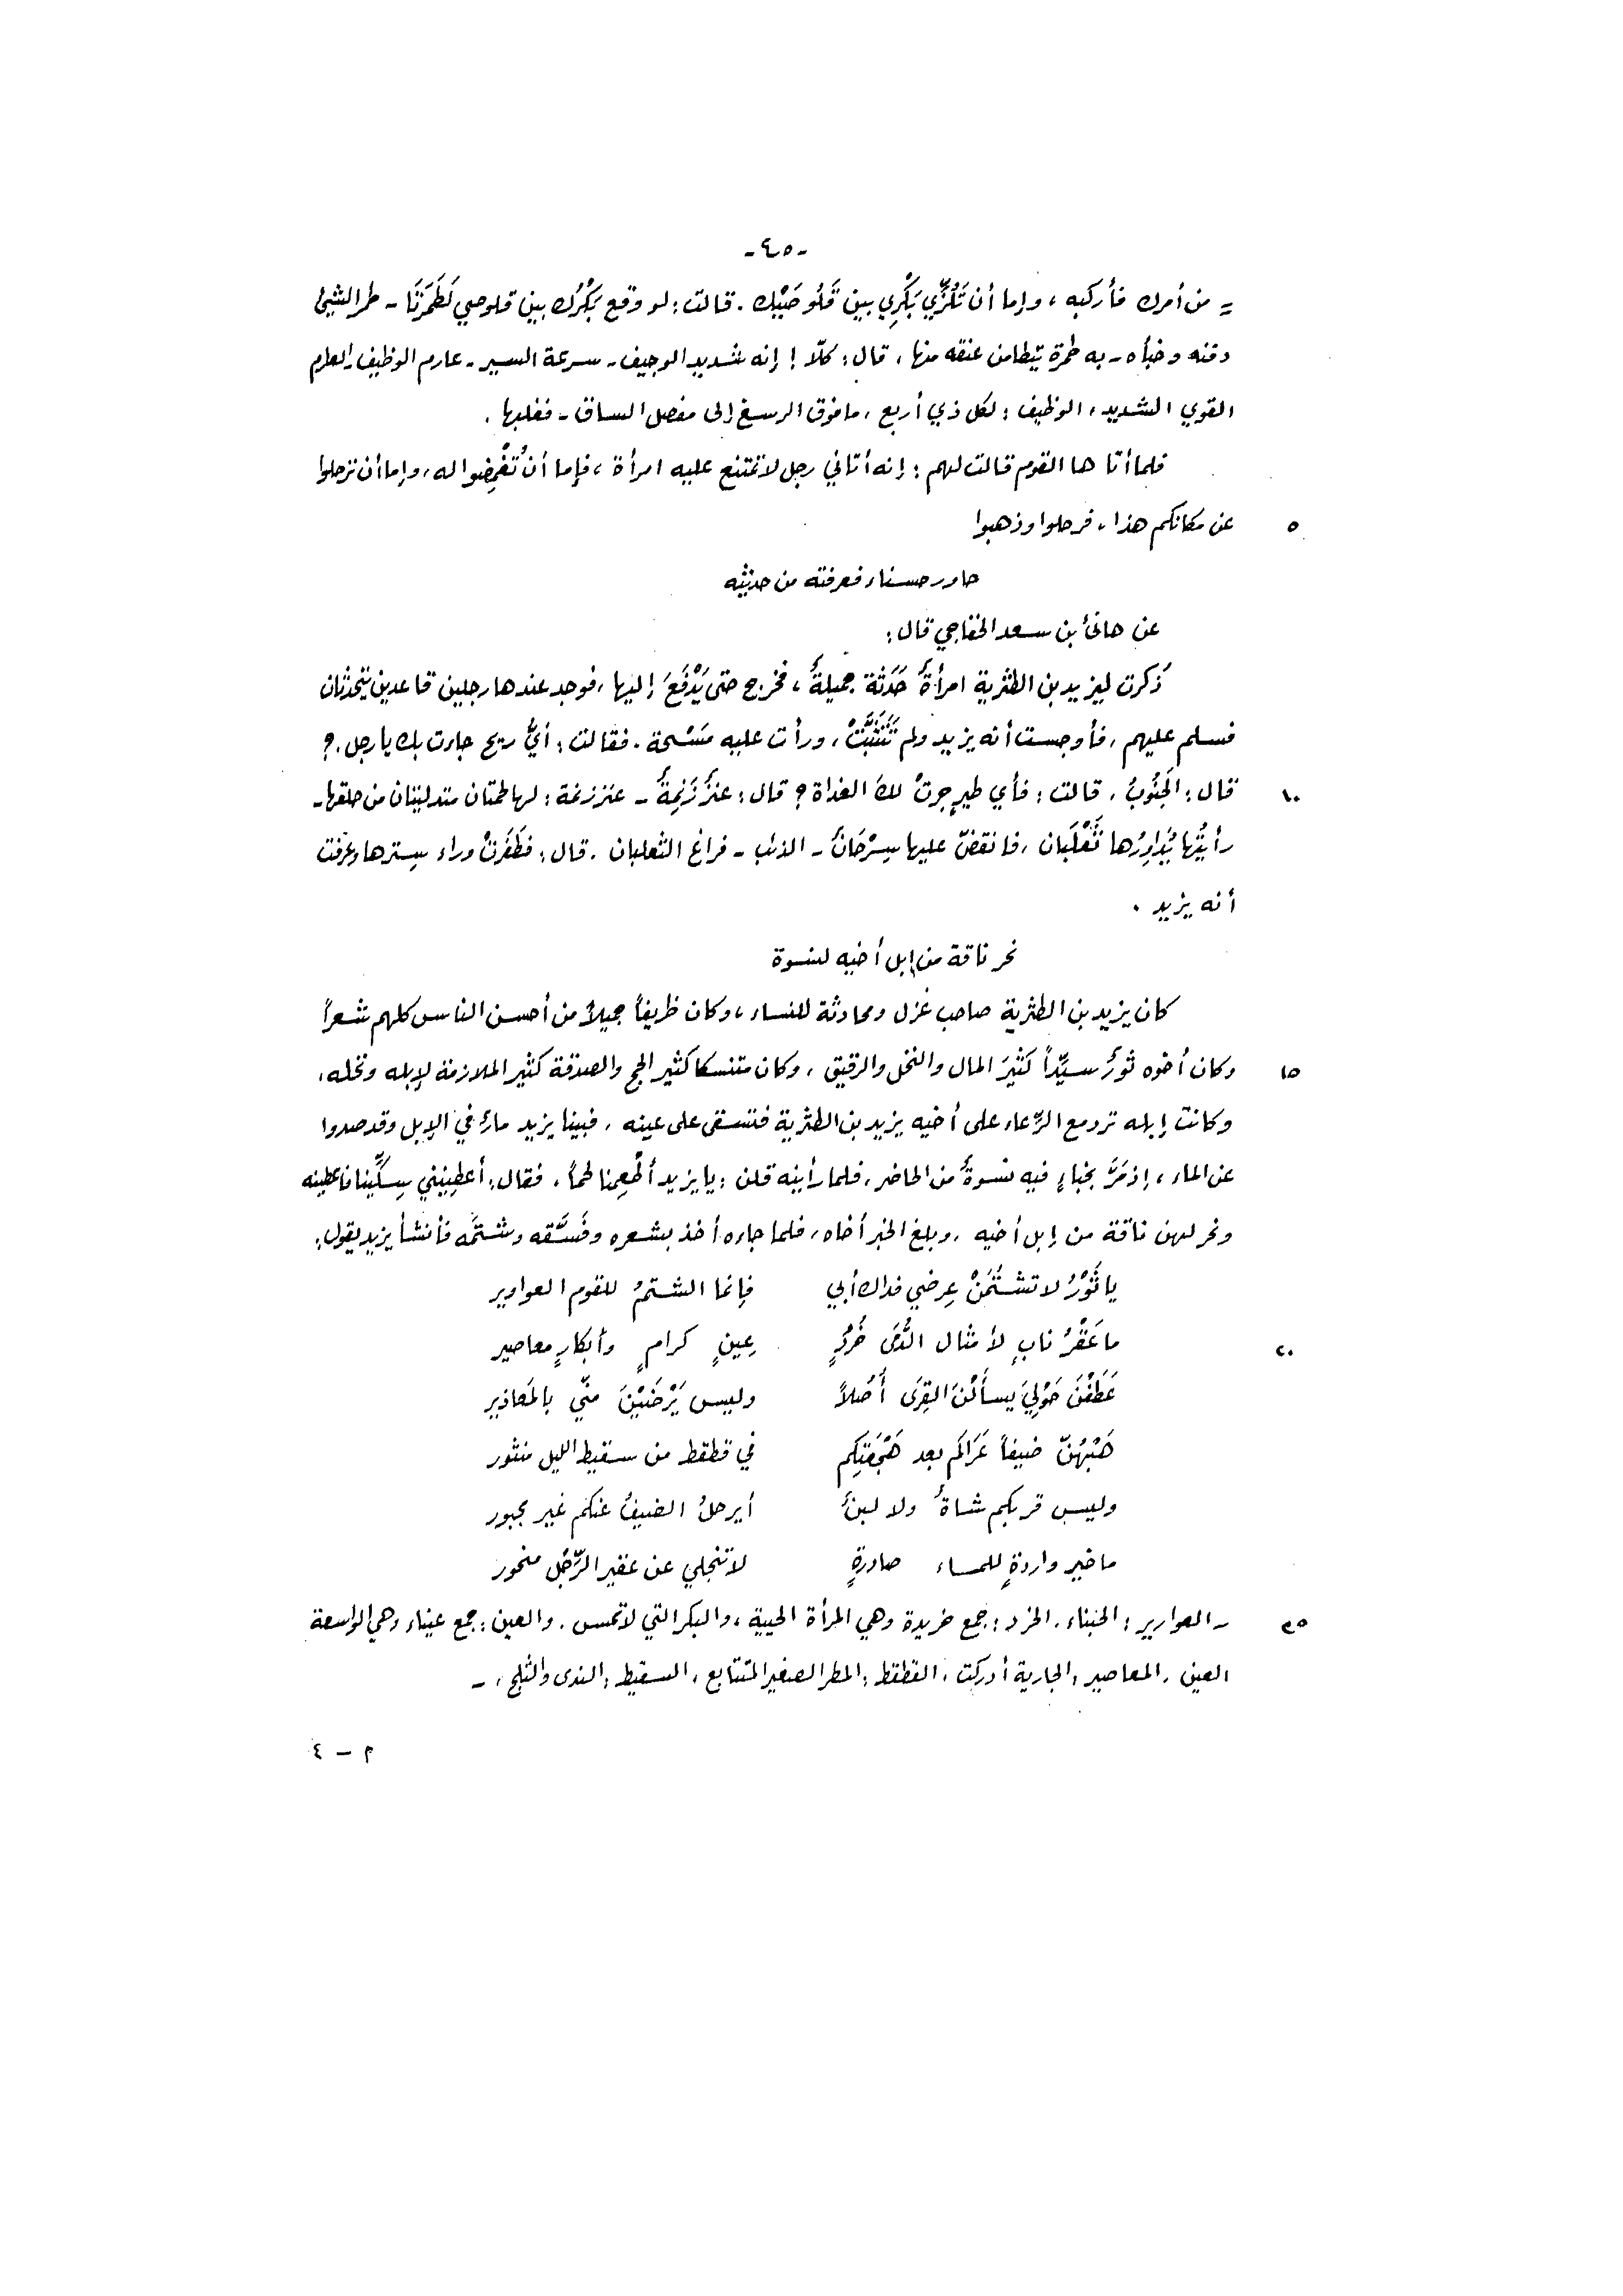 -٤٥-
= من أمرك فأركبه ، وإما أن تَلُزِّي بَكْرِي بين قَلُوصَيْك . قالت : لو وقع بَكْرُك بين قلوصي لَطَمَرَتَا - طمر الشيئ
دفنه وخبأه - به طمرة يتطامن عنقه منها ، قال : كلّا ! إنه شديد الوجيف - سرعة السير - عارم الوظيف - العارم
القوي الشديد ، الوظيف : لكل ذي أربع ، ما فوق الرسغ إلى مفصل الساق - فغلبها .
فلما أتاها القوم قالت لهم : إنه أتاني رجل لا تمتنع عليه امرأة ، فإما أن تُغْمِضُوا له ، وإما أن ترحلوا
٥ عن مكانكم هذا ، فرحلوا وذهبوا
حاور حسناء فعرفته من حديثه
عن هانئ بن سعد الخفاجي قال :
ذُكرت ليزيد بن الطثرية امرأةٌ حَدَثة جميلةٌ ، فخرج حتى يَدْفَعَ إليها ، فوجد عندها رجلين قاعدين يتحدثان
فسلم عليهم ، فأوجست أنه يزيد ولم تَتَثَبَّتْ ، ورأت عليه مَسْحة . فقالت : أيُّ ريح جاءت بك يا رجل . ؟
١٠ قال : الجَنُوبُ . قالت : فأي طيرٍ جرتْ لك الغداة ؟ قال : عنزٌ زَنِمةٌ - عنز زنمة : لها لحمتان متدليتان من حلقها -
رأيتُها يُدَاوِرُها ثَعْلَبان ، فانقضّ عليها سِرْحَانٌ - الذئب - فراغ الثعلبان . قال : فطَفَرَتْ وراء سِترها وعرفت
أنه يزيد .
نحر ناقة من إبل أخيه لنسوة
كان يزيد بن الطثرية صاحب غزل ومحادثة للنساء ، وكان ظريفاً جميلاً من أحسن الناس كلهم شعراً
١٥ وكان أخوه ثورٌ سيِّداً كَثِيرَ المال والنخل والرقيق ، وكان متنسكا كثير الحج والصدقة كثير الملازمة لإبله ونخله ،
وكانت إبله ترد مع الرِّعاء على أخيه يزيد بن الطثرية فتسقى على عينه ، فبينا يزيد مارٌ في الإبل وقد صدروا
عن الماء ، إذ مَرَّ بخباءٍ فيه نسوةٌ من الحاضر ، فلما رأينه قلن : يا يزيد أطْعِمنا لحماً . فقال : أعطِينني سِكِّينا فأعطينه
ونحر لهن ناقة من إبل أخيه ، وبلغ الخبر أخاه ، فلما جاءه أخذ بشعره وفَسَّقه وشتمَه فأنشأ يزيد يقول :
يا ثَوْرُ لا تشتُمَنْ عِرضي فداك أبي فإنما الشتمُ للقوم العواوير
٢٠ ما عَقْرُ نابٍ لأمثال الدُّمَى خُرُدٍ عِينٍ كرامٍ وأبكارٍ معاصير
عَطَفْنَ حَوْلِيَ يسأَلْنَ القِرَى أُصُلاً وليس يَرْضَيْنَ منّي بالمَعَاذير
هَبْهُنّ ضيفاً عَرَاكم بعد هَجْعَتِكم في قطقط من سقيط الليل منثور
وليس قربكم شاةٌ ولا لبنٌ أيرحلُ الضيفُ عنكم غير مجبور
ما خير واردةٍ للماء صادرةٍ لا تنجلي عن عقير الرِّجْل منحور
٢٥ - العوارير : الجبناء . الخرد : جمع خريدة وهي المرأة الحيية ، والبكر التي لا تمس . والعين : جمع عيناء وهي الواسعة
العين . المعاصير : الجارية أدركت . القطقط : المطر الصغير المتتابع ، السقيط : الندى والثلج ، -
م - ٤